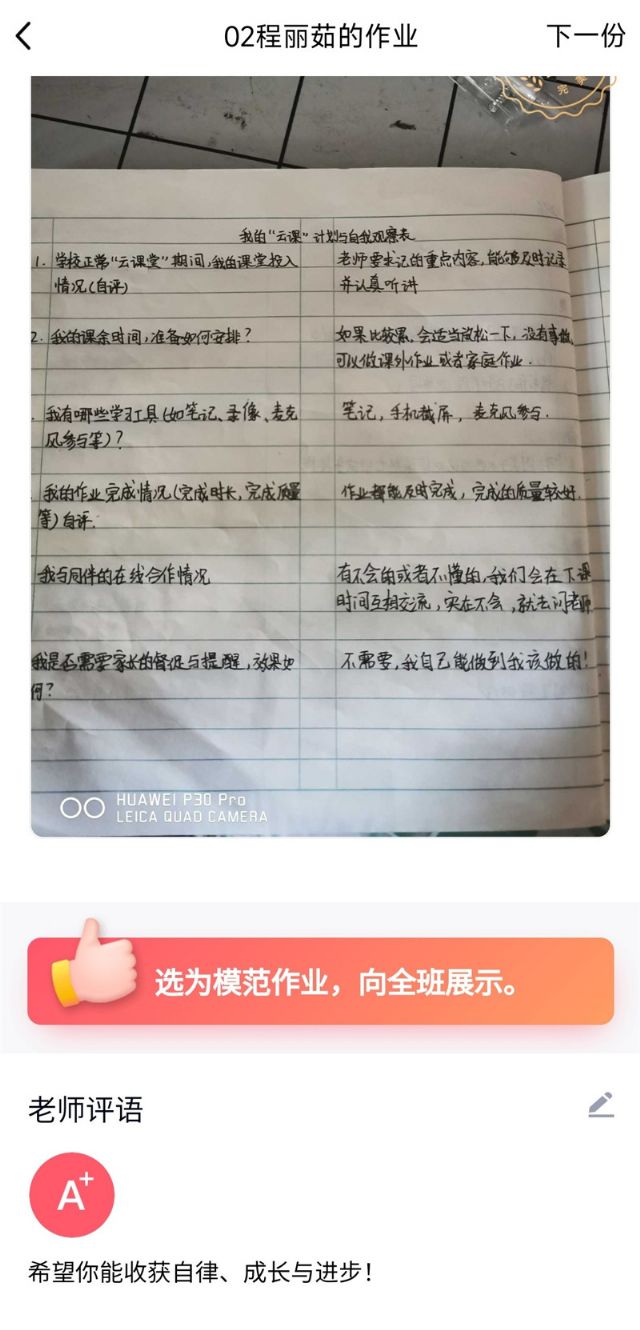 02程丽茹的作业
下一份
我的“云课”计划与自我观察表
1. 学校正常“云课堂”期间,我的课堂投入
情况(自评)
老师要求记的重点内容,能够及时记录
并认真听讲
2. 我的课余时间,准备如何安排?
如果比较累、会适当放松一下,没有事做,
可以做课外作业或者家庭作业.
我有哪些学习工具(如笔记、录像、麦克
风参与等)?
笔记,手机截屏,麦克风参与.
我的作业完成情况(完成时长,完成质量
等)自评.
作业都能及时完成,完成的质量较好.
我与同伴的在线合作情况
有不会的或者不懂的,我们会在下课
时间互相交流,实在不会,就去问老师
我是否需要家长的督促与提醒,效果如
何?
不需要,我自己能做到我该做的!
HUAWEI P30 Pro
LEICA QUAD CAMERA
选为模范作业，向全班展示。
老师评语
A+
希望你能收获自律、成长与进步！